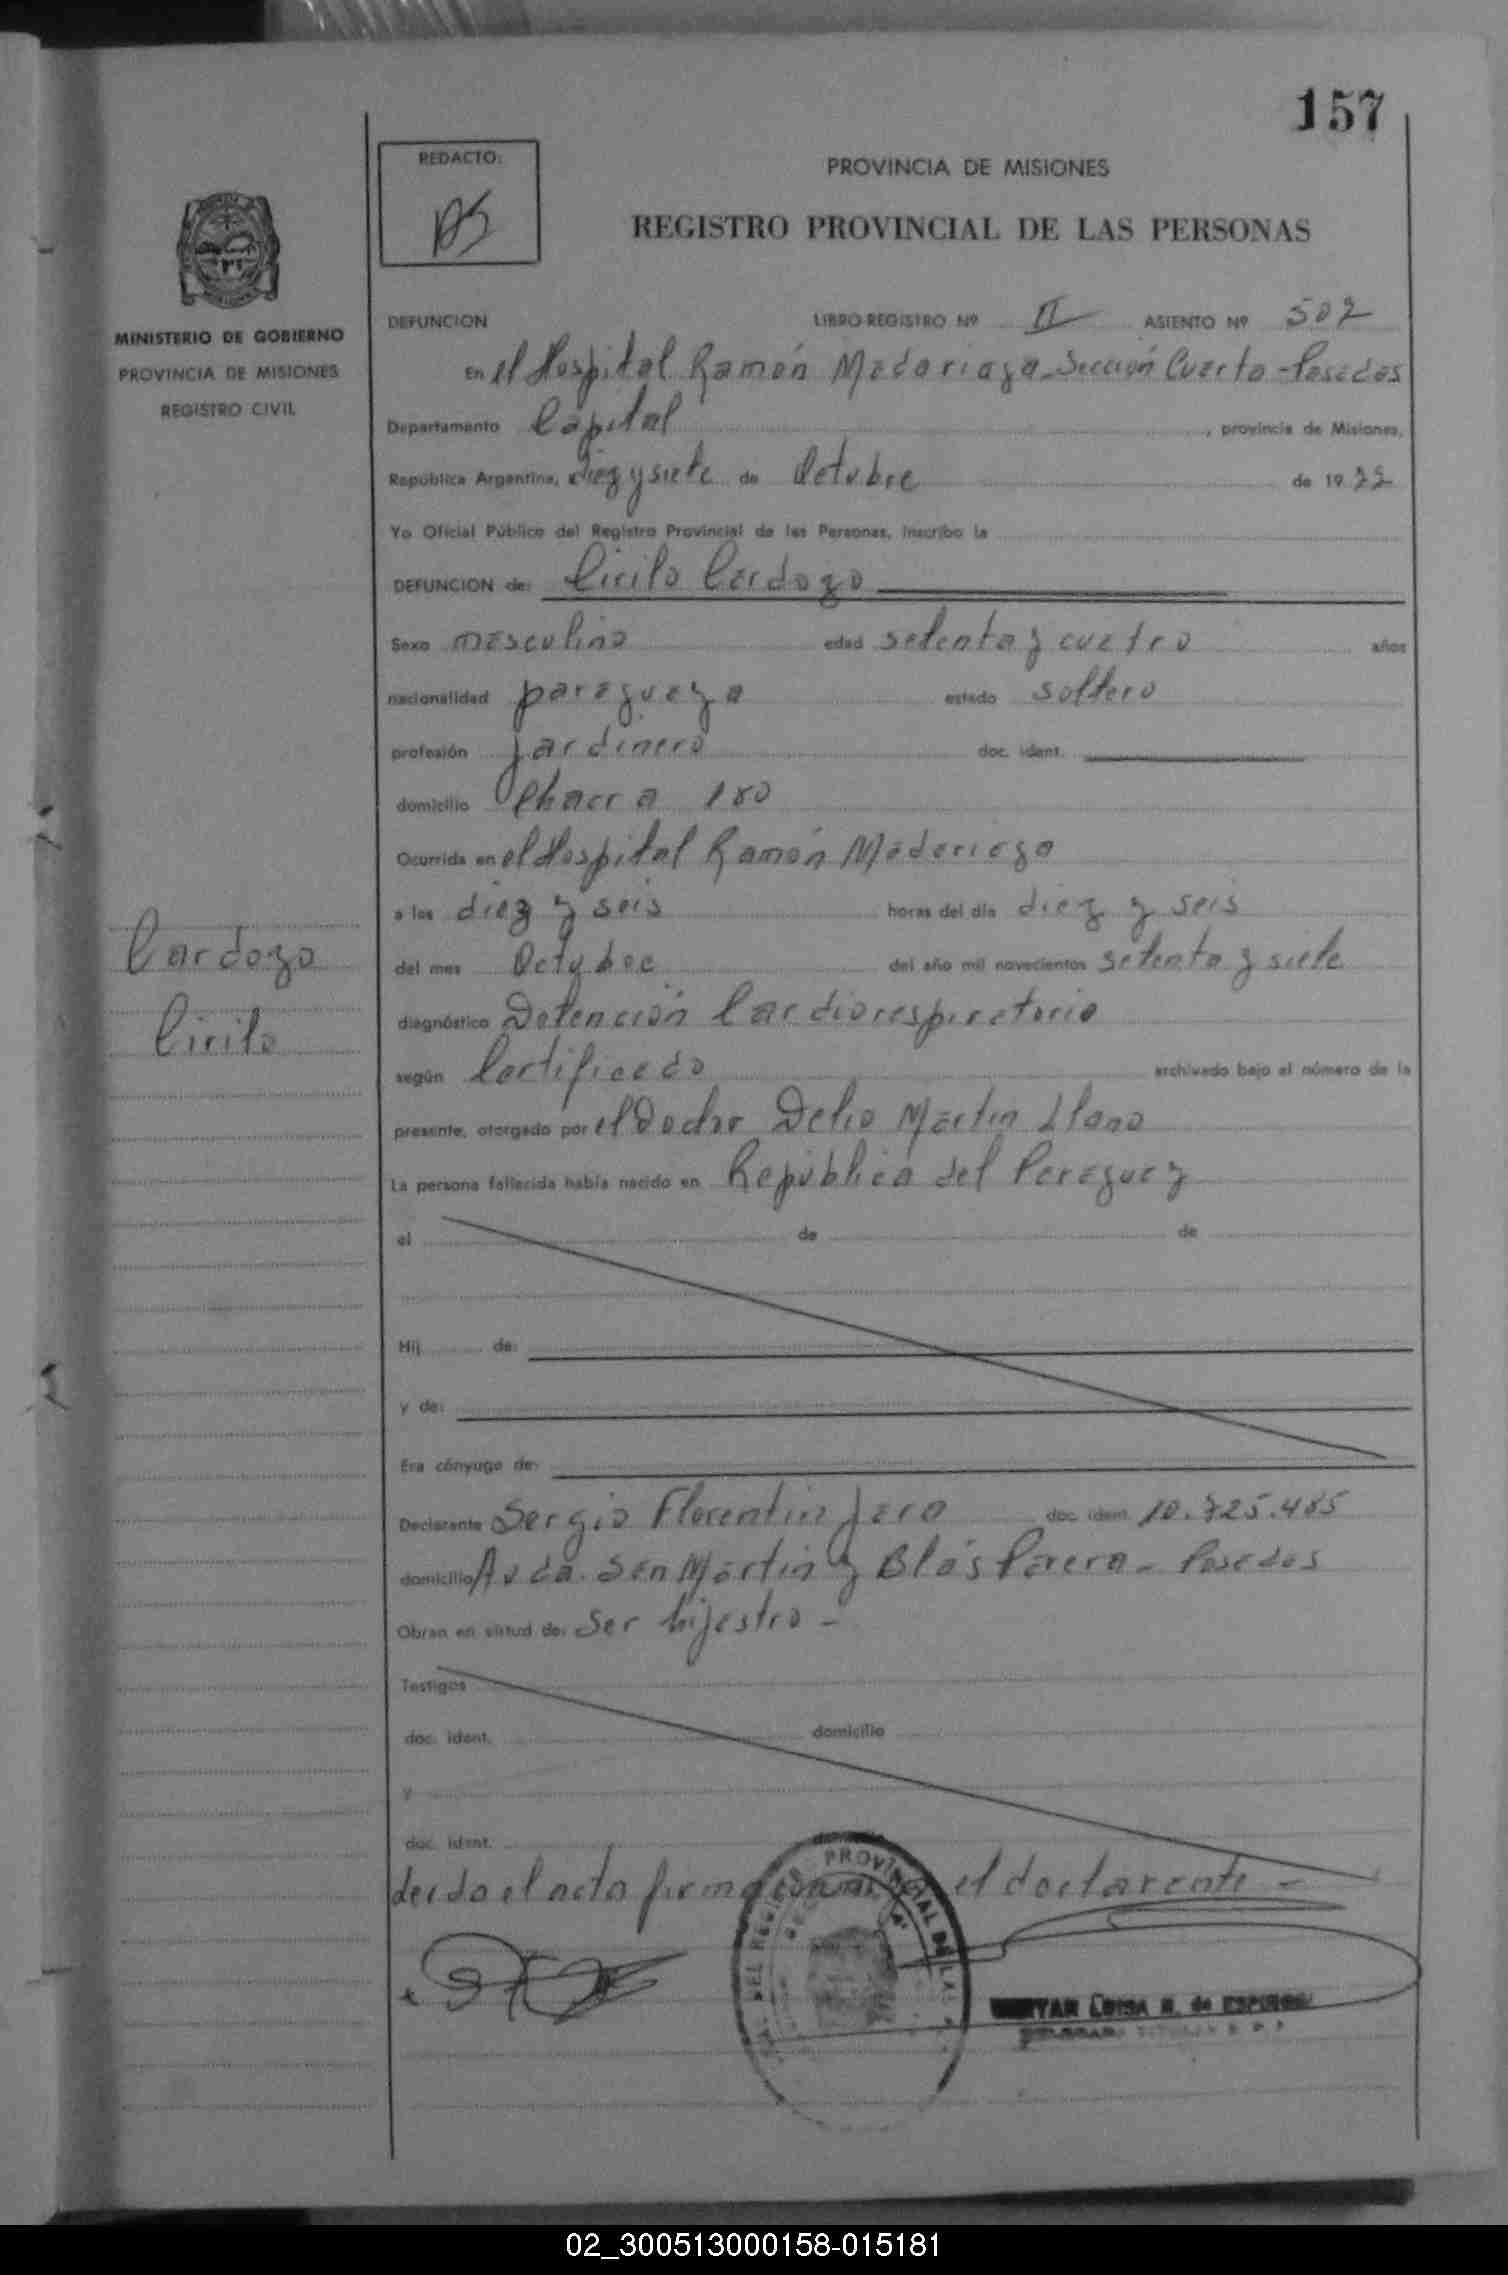 157
REDACTO:
PROVINCIA DE MISIONES
REGISTRO PROVINCIAL DE LAS PERSONAS
MINISTERIO DE GOBIERNO
PROVINCIA DE MISIONES
REGISTRO CIVIL
DEFUNCION LIBRO-REGISTRO Nº II ASIENTO Nº 507
En el Hospital Ramón Madariaga - Sección Cuarta - Posadas
Departamento Capital, provincia de Misiones,
República Argentina, diez y siete de Octubre de 1977
Yo Oficial Público del Registro Provincial de las Personas, inscribo la
DEFUNCION de: Cirilo Cardozo
Sexo masculino edad setenta y cuatro años
nacionalidad paraguaya estado soltero
profesión jardinero doc. ident.
domicilio Chacra 180
Ocurrida en el Hospital Ramón Madariaga
a las diez y seis horas del día diez y seis
del mes Octubre del año mil novecientos setenta y siete
diagnóstico Detención Cardiorespiratoria
según Certificado archivado bajo el número de la
presente, otorgado por el Doctor Delio Martin Llano
La persona fallecida había nacido en República del Paraguay
el de de
Hij de:
y de:
Era cónyuge de:
Cardozo
Cirilo
Declarante Sergio Florentin Jara doc. ident. 10.725.485
domicilio Avda. San Martin y Blás Parera - Posadas
Obran en virtud de: Ser hijastro -
Testigos
doc. ident. domicilio
y
doc. ident.
Leida el acta firma conmigo el declarante -
PROVINCIAL DE LAS
LUISA R. de
02_300513000158-015181